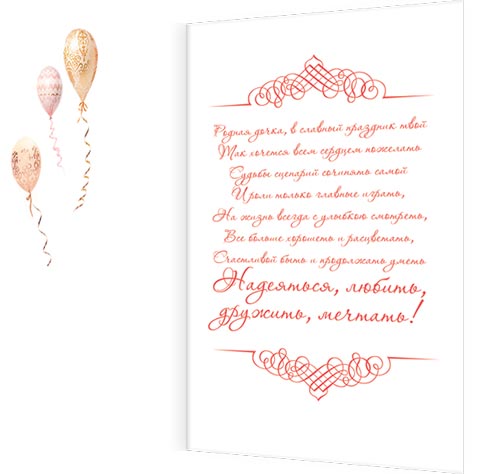 Родная дочка, в славный праздник твой
Так хочется всем сердцем пожелать
Судьбы сценарий сочинять самой
И роли только главные играть,
На жизнь всегда с улыбкой смотреть,
Все больше хорошеть и расцветать,
Счастливой быть и продолжать уметь
Надеяться, любить,
дружить, мечтать!